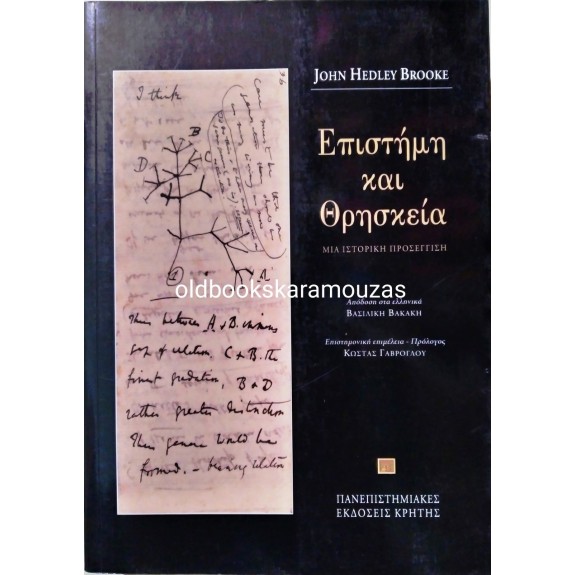 JOHN HEDLEY BROOKE
Επιστήμη
και
Θρησκεία
ΜΙΑ ΙΣΤΟΡΙΚΗ ΠΡΟΣΕΓΓΙΣΗ
Απόδοση στα ελληνικά
ΒΑΣΙΛΙΚΗ ΒΑΚΑΚΗ
Επιστημονική επιμέλεια - Πρόλογος
ΚΩΣΤΑΣ ΓΑΒΡΟΓΛΟΥ
ΠΑΝΕΠΙΣΤΗΜΙΑΚΕΣ
ΕΚΔΟΣΕΙΣ ΚΡΗΤΗΣ
36
I think
B
D
C
A
1
oldbookskaramouzas
Thus between A & B. immens
gap of relation. C & B. the
finest gradation, B & D
rather greater distinction
Thus genera would be
formed. — bearing relation